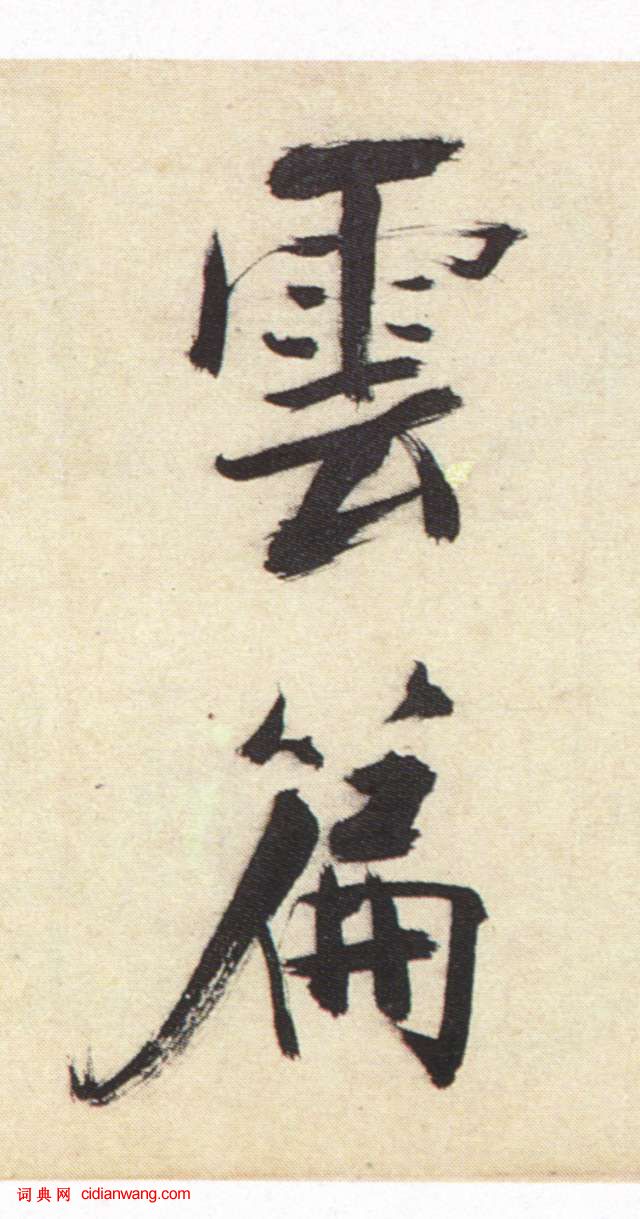 雲
篇
词典网 cidianwang.com